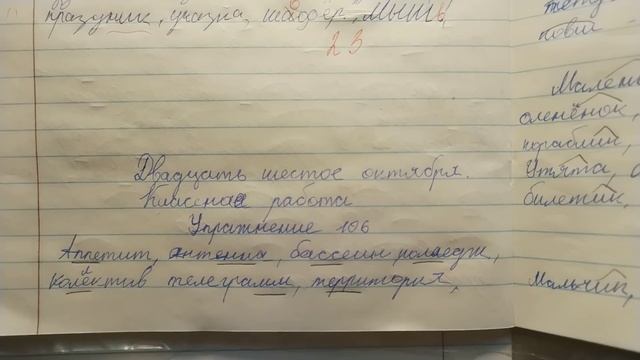 праздник, учазна, шофёр, мышь
23
Двадцать шестое октября.
Классная работа
Упражнение 106
Аппетит, антенна, бассеин колледж,
колектив телеграмм, территория,
тепу
пови
Мален
оленёнок,
кораблик,
Утята,
билетик,
Мальчик,